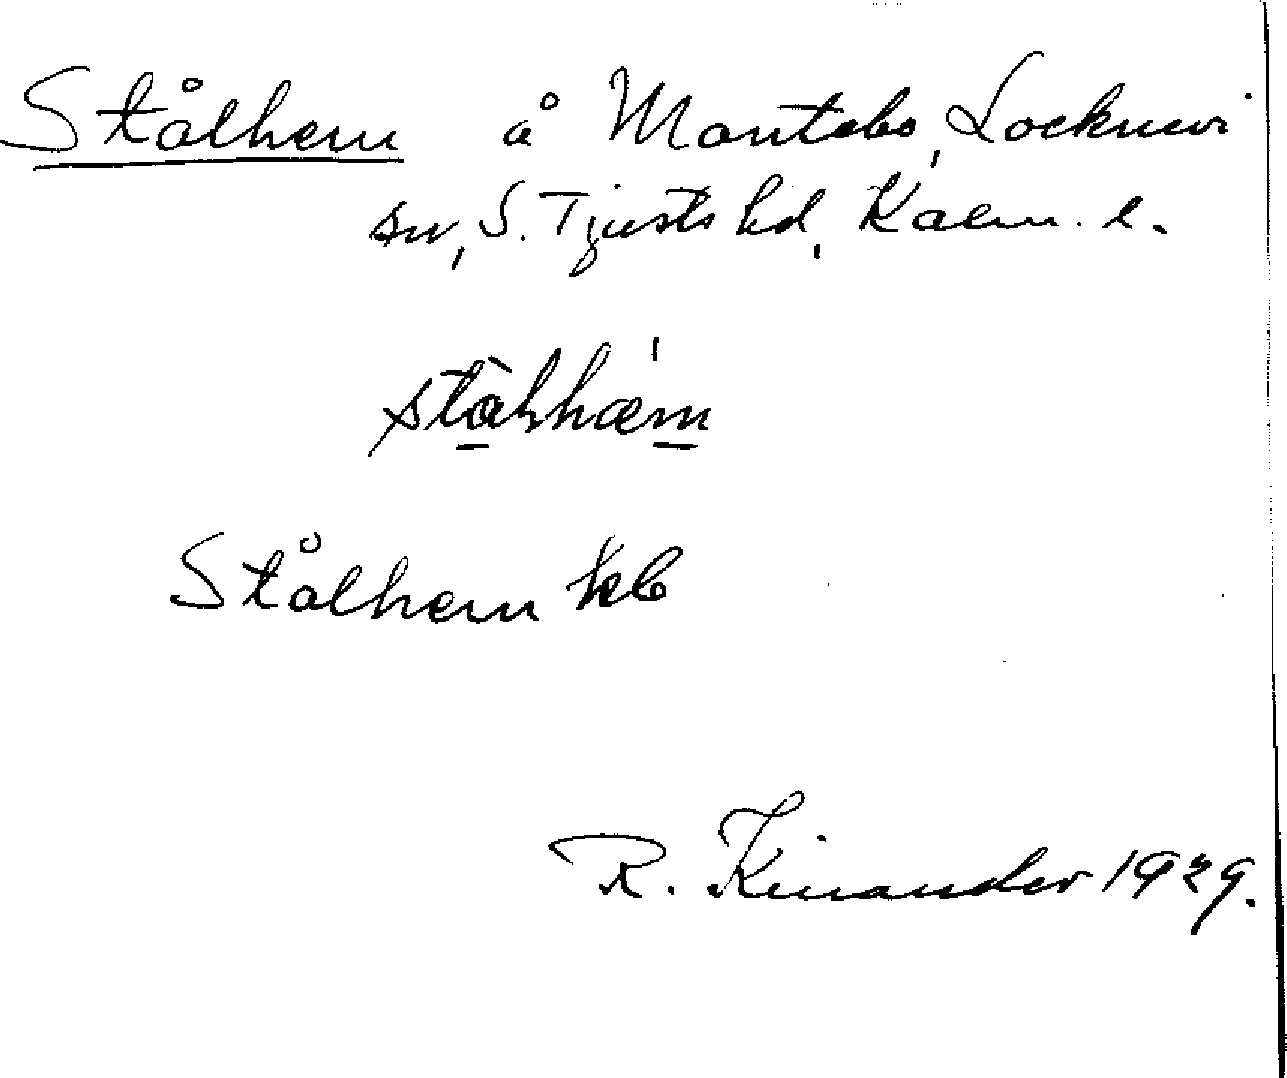 Stålhem å Mantebo, Locknevi
sn, S. Tjusts hd, Kalm. l.
stålhæm
Stålhem kb
R. Kinander 1929.